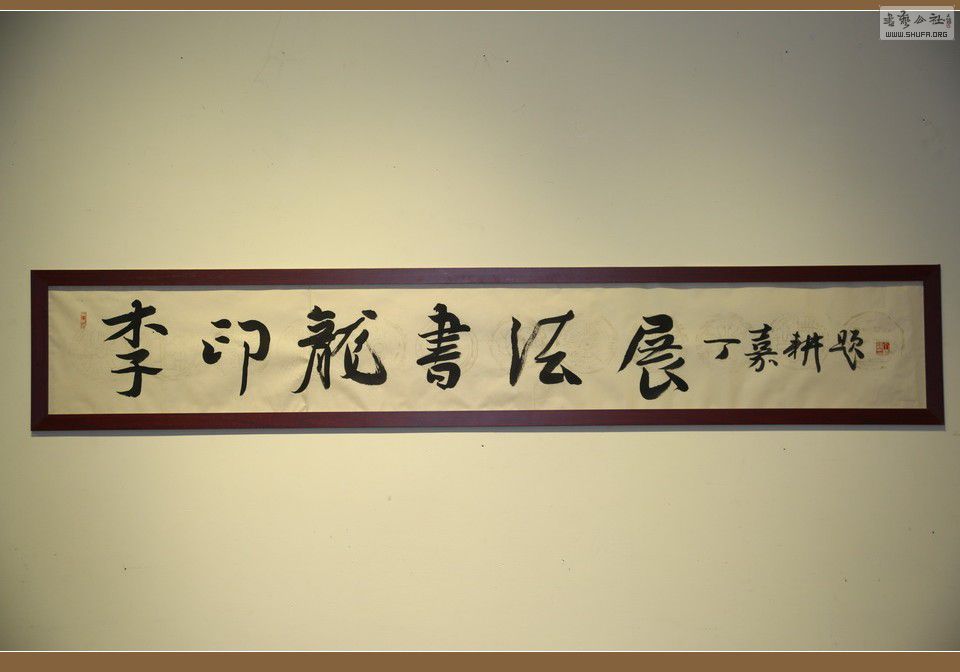 书艺公社
WWW.SHUFA.ORG
李印龍書法展 丁嘉耕题